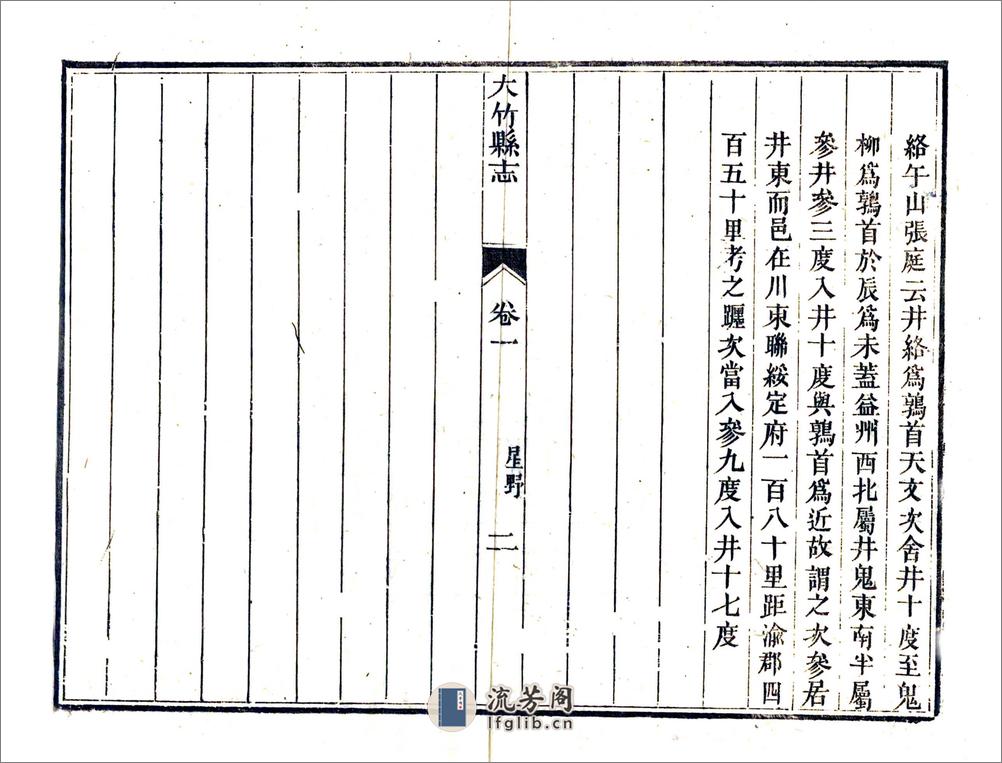 絡午山張庭云井絡爲鶉首天文次舍井十度至鬼
柳爲鶉首於辰爲未蓋益州西北屬井鬼東南半屬
參井參三度入井十度與鶉首爲近故謂之次參居
井東而邑在川東聯綏定府一百八十里距渝郡四
百五十里考之躔次當入參九度入井十七度
大竹縣志
卷一
星野
二
流芳阁
lfglib.cn